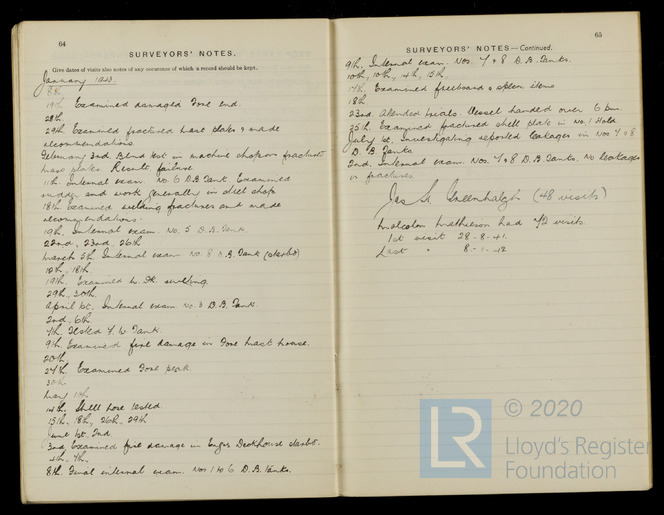 64
SURVEYORS' NOTES.
Give dates of visits also notes of any occurrence of which a record should be kept.
January 1943.
8th
19th Examined damaged Fore end.
28th
29th Examined fractured Mast plates & made
recommendations
February 3rd. Bend test in machine shop on fractured
Mast plates. Result failure
11th Internal exam. No 6 D.B. Tank. Examined
rudder and work generally in sheet shop.
18th Examined welding fractures and made
recommendations.
19th. Internal exam. No. 5 D.B. Tank.
22nd, 23rd, 26th
March 5th. Internal exam. No. 8 D.B. Tank (starbd)
10th, 18th.
19th. Examined
29th, 30th.
April 1st. Internal exam. No. 3 D.B. Tank.
2nd, 6th.
7th. Tested F. W. Tank.
9th Examined fire damage in Fore Mast house.
20th
27th. Examined Fore peak
30th
May 1st
14th. Shell hose tested
15th, 18th, 26th, 29th
June 1st, 2nd
3rd, Examined fire damage in Engrs Deckhouse starbd.
4th, 7th.
8th. Final internal exam. Nos 1 to 6 D.B. Tanks.
65
SURVEYORS' NOTES—Continued.
9th. Internal exam. Nos. 7 & 8 D.B. Tanks.
10th, 10th, 14th, 15th,
17th. Examined freeboard & open items
18th
23rd. Attended trials. Vessel handed over 6 pm.
25th. Examined fractured shell plate in No. 1 Hold
July 1st. Investigating reported leakages in Nos 7 & 8
D. B. Tanks
2nd. Internal exam. Nos. 7 & 8 D.B. Tanks. No leakages
or fractures.
Jas Greenhalgh (48 visits)
Malcolm Mathieson had 42 visits.
1st visit 28-8-41.
Last " 8-1-42
LR
© 2020
Lloyd's Register
Foundation